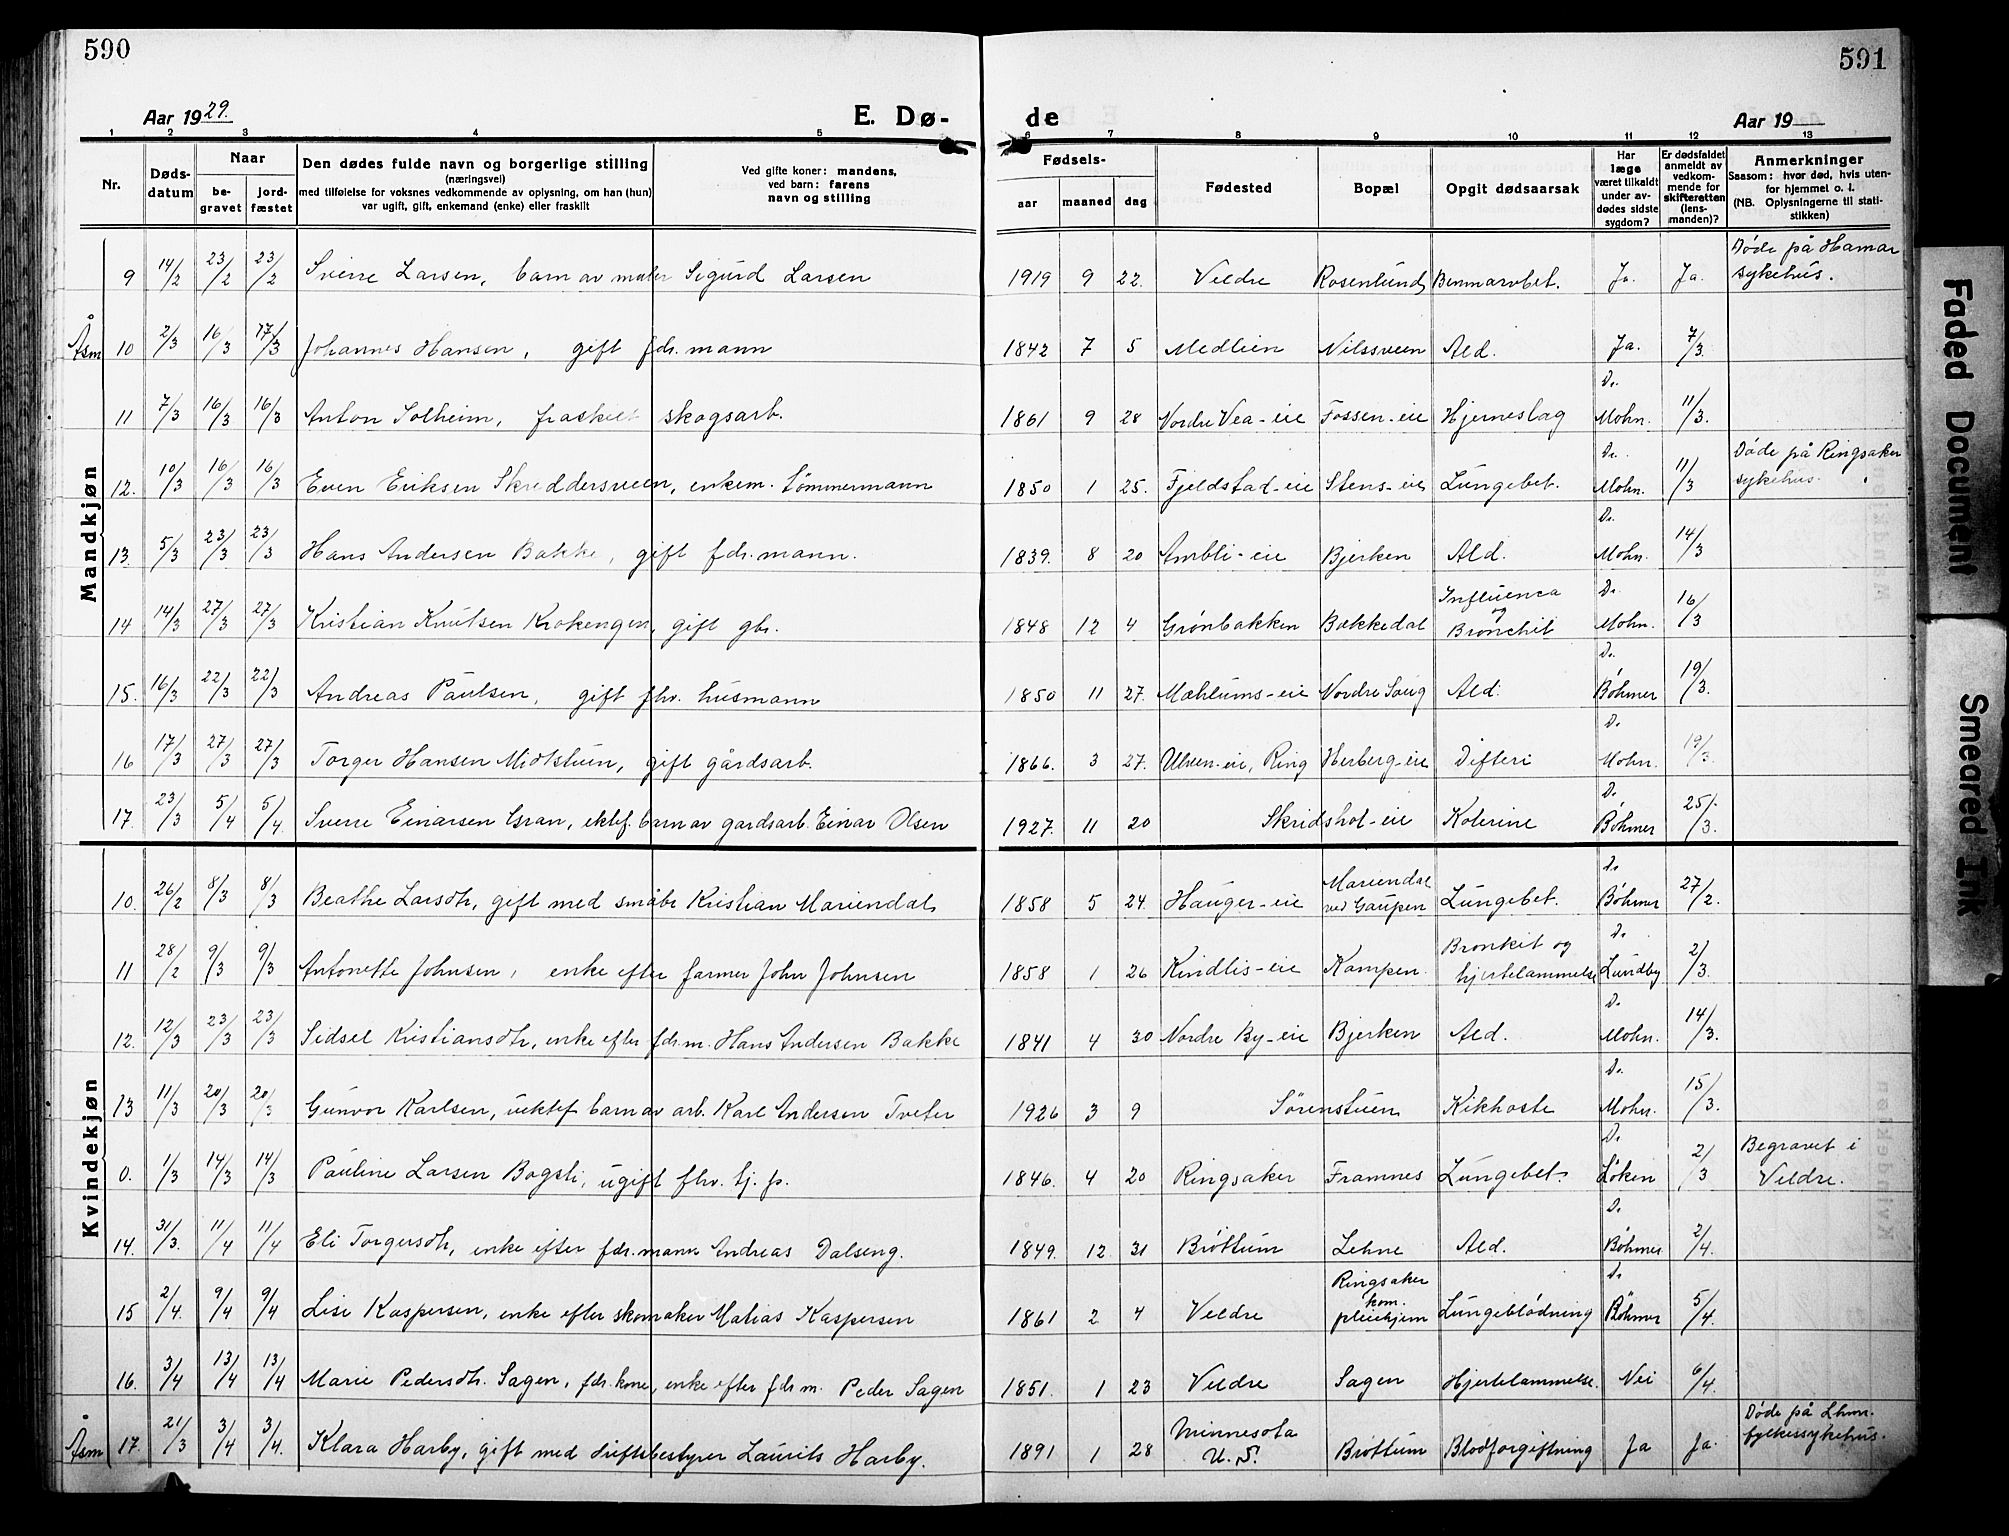 590
591
Aar 1929.
E. Dø-
de
Aar 19
1 2 3 4 5 6 7 8 9 10 11 12 13
Nr.
Døds-
datum
Naar
be-
gravet
jord-
fæstet
Den dødes fulde navn og borgerlige stilling
(næringsvei)
med tilføielse for voksnes vedkommende av oplysning, om han (hun)
var ugift, gift, enkemand (enke) eller fraskilt
Ved gifte koner: mandens,
ved barn: farens
navn og stilling
Fødsels-
aar maaned dag
Fødested
Bopæl
Opgit dødsaarsak
Har
læge
været tilkaldt
under av-
dødes sidste
sygdom?
Er dødsfaldet
anmeldt av
vedkom-
mende for
skifteretten
(lens-
manden)?
Anmerkninger
Saasom: hvor død, hvis uten-
for hjemmet o. l.
(NB. Oplysningerne til stati-
stikken)
Mandkjøn
9 14/2 23/2 23/2 Sverre Larsen, barn av maler Sigurd Larsen 1919 9 22. Veldre Rosenlund Benmarvbet. Ja. Ja. Døde på Hamar sykehus.
Åsm 10 2/3 16/3 17/3 Johannes Hansen, gift fdr. mann 1842 7 5 Medlien Nilssveen Ald. Ja. 7/3.
11 7/3 16/3 16/3 Anton Solheim, fraskilt skogsarb. 1861 9 28 Nordre Vea-eie Fossen-eie Hjerneslag Dr. Mohn. 11/3.
12. 10/3 16/3 16/3 Even Eriksen Skreddersveen, enkem. Tømmermann 1850 1 25. Fjeldstad-eie Stens-eie Lungebet. Dr. Mohn. 11/3 Døde på Ringsaker sykehus.
13. 5/3 23/3 23/3 Hans Andersen Bakke, gift fdr. mann. 1839. 8 20 Ambli-eie Bjerken Ald. Dr. Mohn. 14/3
14 14/3 27/3 27/3 Kristian Knutsen Krokengen, gift gbr. 1848 12 4 Grønbakken Bakkedal Influenca og Bronchit Dr. Mohn. 16/3
15. 16/3 22/3 22/3 Andreas Paulsen, gift fhv. husmann 1850 11 27. Mæhlums-eie Nordre Saug Ald. Dr. Böhmer 19/3.
16 17/3 27/3 27/3 Torger Hansen Midtstuen, gift gårdsarb. 1866. 3 27. Ulven-eie, Ring Herberg-eie Difteri Dr. Mohn. 19/3.
17. 23/3 5/4 5/4. Sverre Einarsen Gran, ektef. barn av gardsarb. Einar Olsen 1927. 11 20 Skridshol-eie Kolerine Dr. Böhmer 25/3.
Kvindekjøn
10. 26/2 8/3 8/3 Beathe Larsdtr, gift med småbr Kristian Mariendal 1858 5 24. Hauger-eie Mariendal ved Gaupen Lungebet. Dr. Böhmer 27/2.
11 28/2 9/3 9/3 Antonette Johnsen, enke efter farmer John Johnsen 1858 1 26 Kindlis-eie Kampen Bronkit og hjertelammelse Dr. Lundby 2/3.
12. 12/3 23/3 23/3 Sidsel Kristiansdtr, enke efter fdr. m. Hans Andersen Bakke 1841 4 30 Nordre By-eie Bjerken Ald. Dr. Mohn. 14/3.
13 11/3 20/3 20/3 Gunvor Karlsen, uektef barn av arb. Karl Andersen Tveter 1926 3 9 Sørenstuen Kikhoste Dr. Mohn. 15/3.
0. 1/3 14/3 14/3 Pauline Larsen Bogsti, ugift fhv. tj. p. 1846. 4 20 Ringsaker Framnes Lungebet. Dr. Løken 2/3 Begravet i Veldre.
14. 31/3. 11/4 11/4 Eli Torgersdtr, enke efter fdr. mann Andreas Dalseng. 1849. 12 31 Brøttum Lehne Ald. Dr. Böhmer 2/4.
15 2/4. 9/4 9/4 Lise Kaspersen, enke efter skomaker Matias Kaspersen 1861 2 4 Veldre Ringsaker kom. pleiehjem Lungeblødning Dr. Böhmer 5/4.
16. 3/4 13/4 13/4 Marie Pedersdtr. Sagen, fdr. kone, enke efter fdr m. Peder Sagen 1851. 1 23 Veldre Sagen Hjertelammelse. Nei 6/4.
Åsm 17. 21/3 3/4 3/4. Klara Harby, gift med driftsbestyrer Laurits Harby. 1891 1 28 Minnesota U. S. Brøttum Blodforgiftning Ja Ja. Døde på Lhmr. fylkessykehus.
Faded Document
Smeared Ink